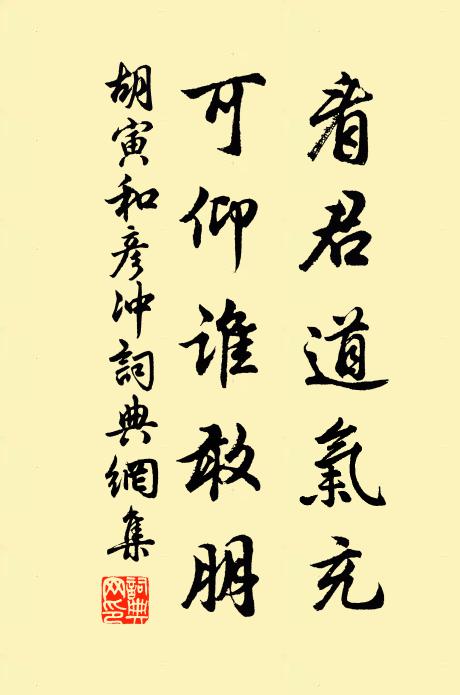 看君道氣充
可仰誰敢朋
胡寅和彥沖詞典網集
詞典網印